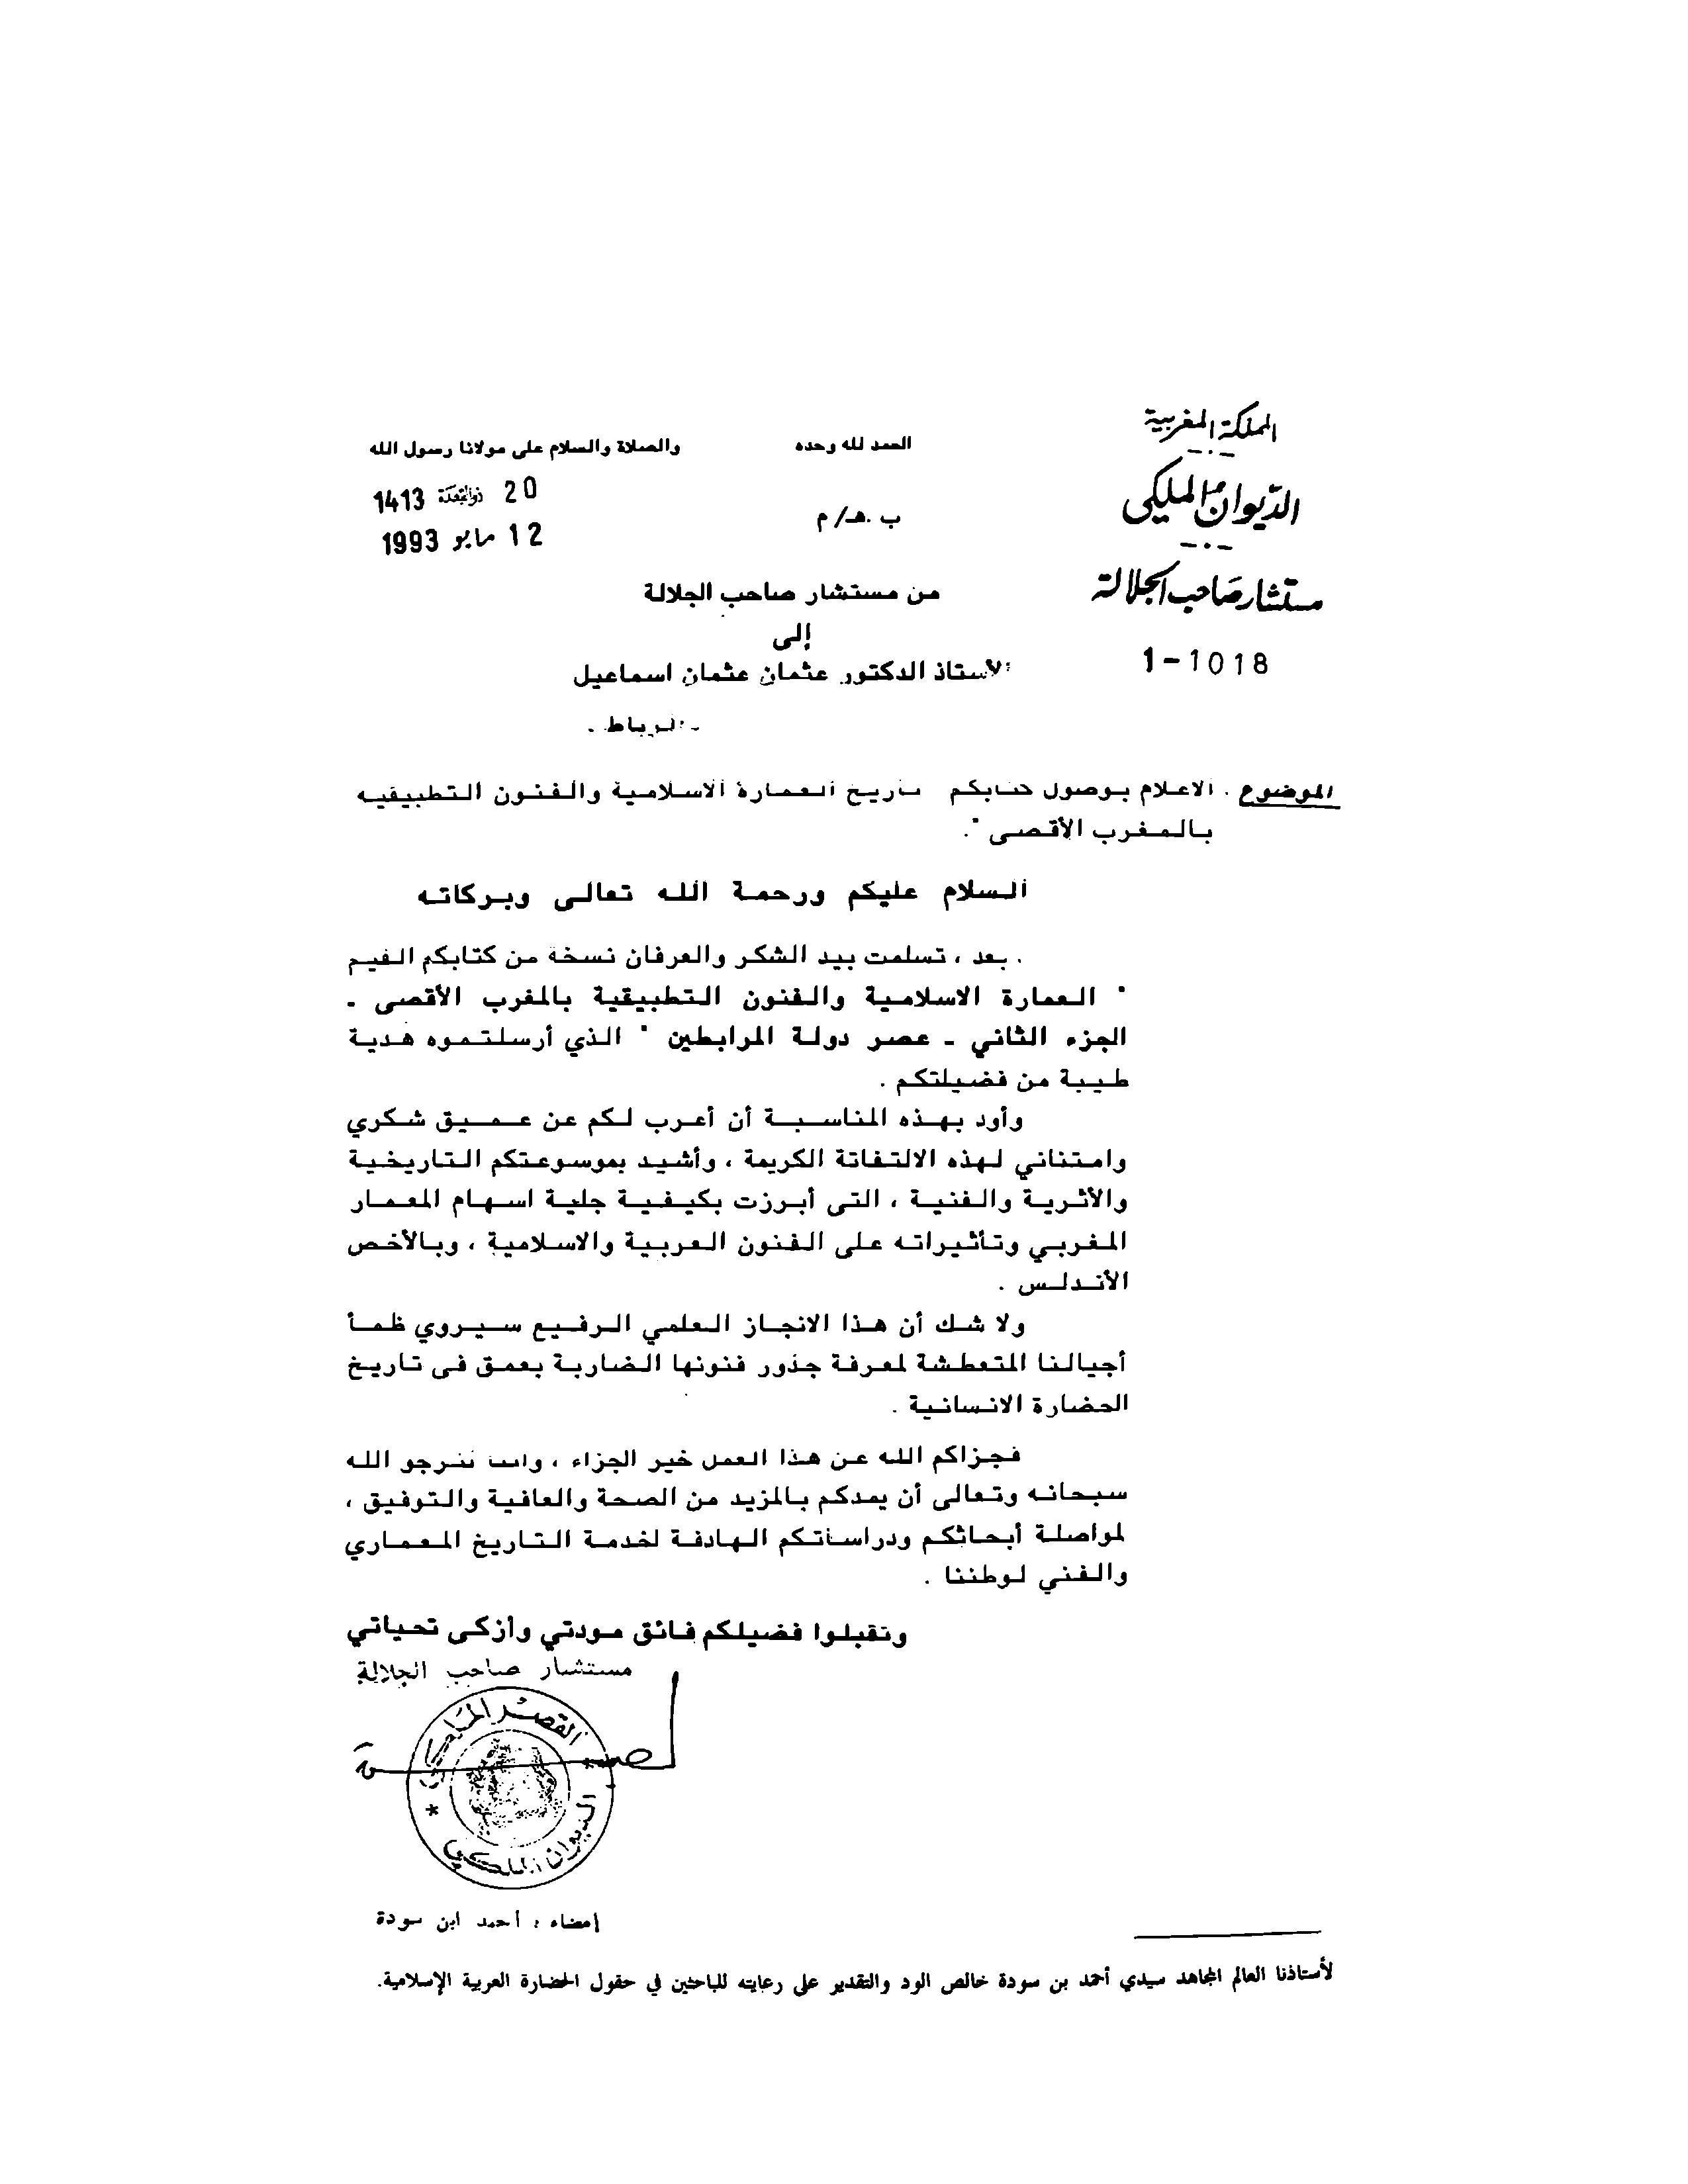 المملكة المغربية
الديوان الملكي
مستشار صاحب الجلالة
1-1018
الحمد لله وحده
والصلاة والسلام على مولانا رسول الله
20 ذو القعدة 1413
12 مايو 1993
ب .هـ/ م
من مستشار صاحب الجلالة
إلى
الأستاذ الدكتور عثمان عثمان اسماعيل
- الرباط .
الموضوع . الاعلام بوصول كتابكم تاريخ العمارة الاسلامية والفنون التطبيقيه
بالمغرب الأقصى ".
السلام عليكم ورحمة الله تعالى وبركاته
. بعد ، تسلمت بيد الشكر والعرفان نسخة من كتابكم القيم
" العمارة الاسلامية والفنون التطبيقية بالمغرب الأقصى -
الجزء الثاني - عصر دولة المرابطين " الذي أرسلتموه هدية
طيبة من فضيلتكم .
وأود بهذه المناسبة أن أعرب لكم عن عميق شكري
وامتناني لهذه الالتفاتة الكريمة ، وأشيد بموسوعتكم التاريخية
والأثرية والفنية ، التى أبرزت بكيفية جلية اسهام المعمار
المغربي وتأثيراته على الفنون العربية والاسلامية ، وبالأخص
الأندلس .
ولا شك أن هذا الانجاز العلمي الرفيع سيروي ظمأ
أجيالنا المتعطشة لمعرفة جذور فنونها الضاربة بعمق فى تاريخ
الحضارة الانسانية .
فجزاكم الله عن هذا العمل خير الجزاء ، واننا نرجو الله
سبحانه وتعالى أن يمدكم بالمزيد من الصحة والعافية والتوفيق ،
لمواصلة أبحاثكم ودراساتكم الهادفة لخدمة التاريخ المعماري
والفني لوطننا .
وتقبلوا فضيلكم فائق مودتي وأزكى تحياتي
مستشار صاحب الجلالة
القصر الملكي
* الديوان الملكي *
إمضاء : أحمد ابن سودة
لأستاذنا العالم المجاهد سيدي أحمد بن سودة خالص الود والتقدير على رعايته للباحثين في حقول الحضارة العربية الإسلامية.